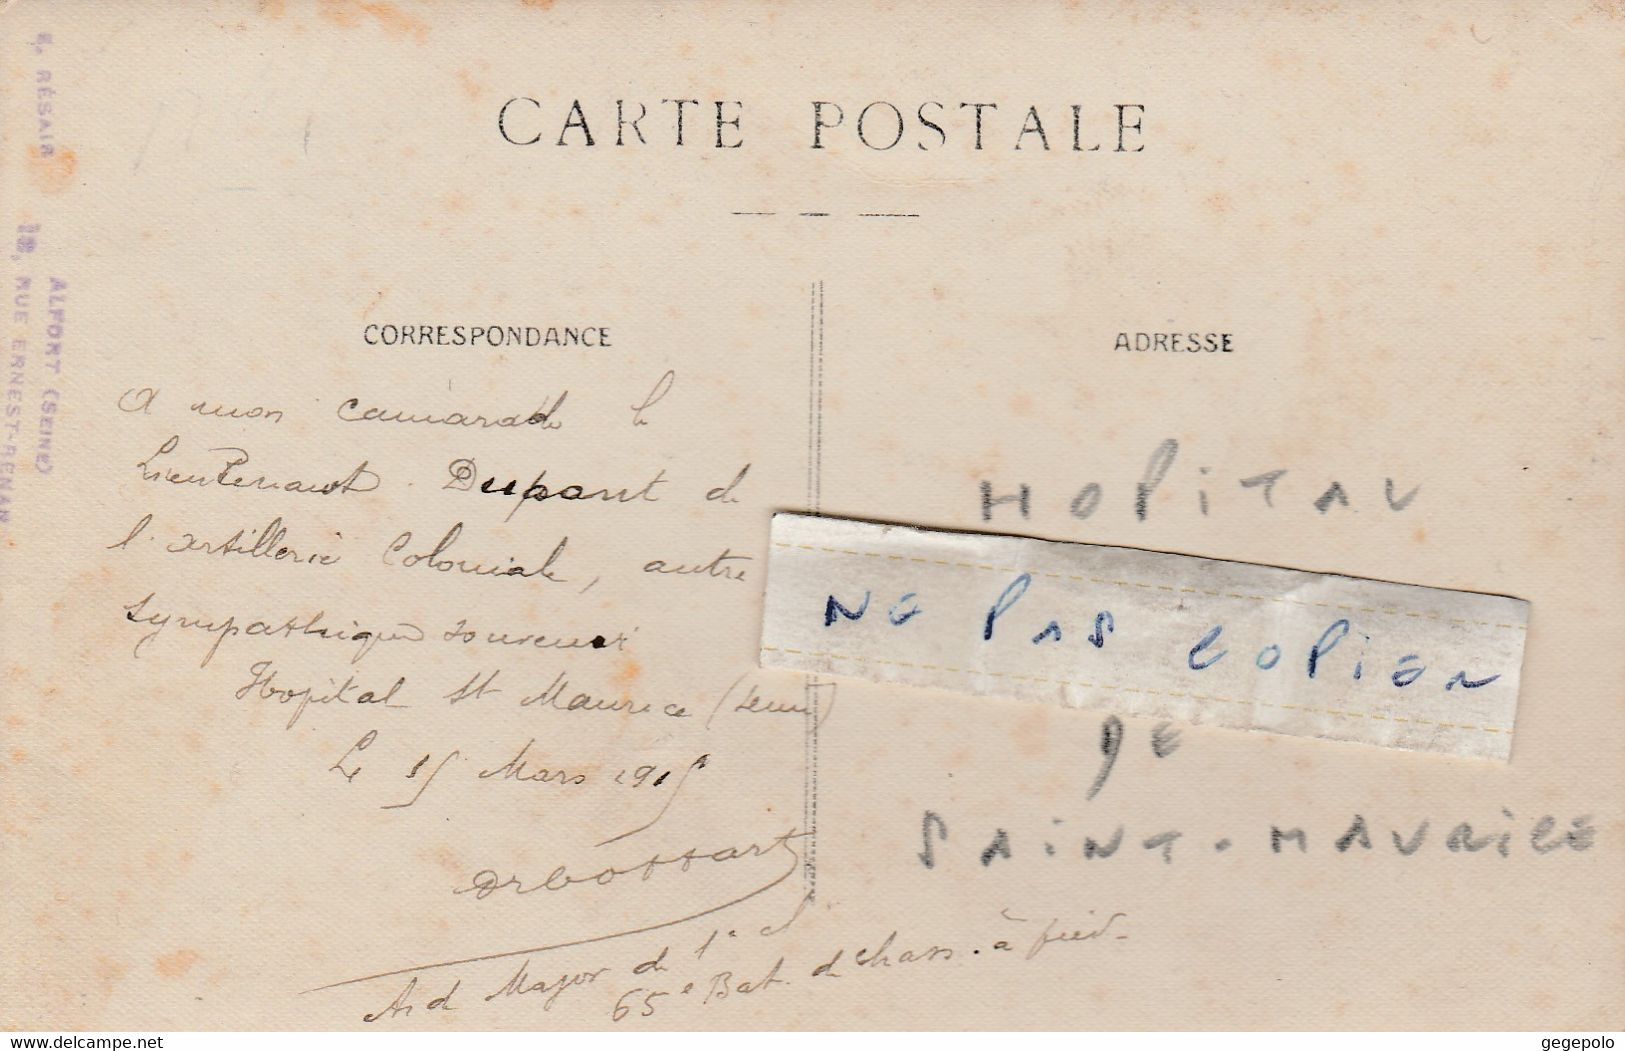 E. RÉSAIR
ALFORT (SEINE)
RUE ERNEST-RENAN
CARTE POSTALE
CORRESPONDANCE
ADRESSE
A mon camarade le
Lieutenant Dupont de
l'artillerie Coloniale, autre
sympathique souvenir
Hopital St Maurice (Seine)
Le 15 Mars 1915
Aid Major de 1e cl
65e Bat. de chass. à pied-
HOPITAU
NE PAS COPIER
DE
SAINT-MAURICE
delcampe.net
gegepolo